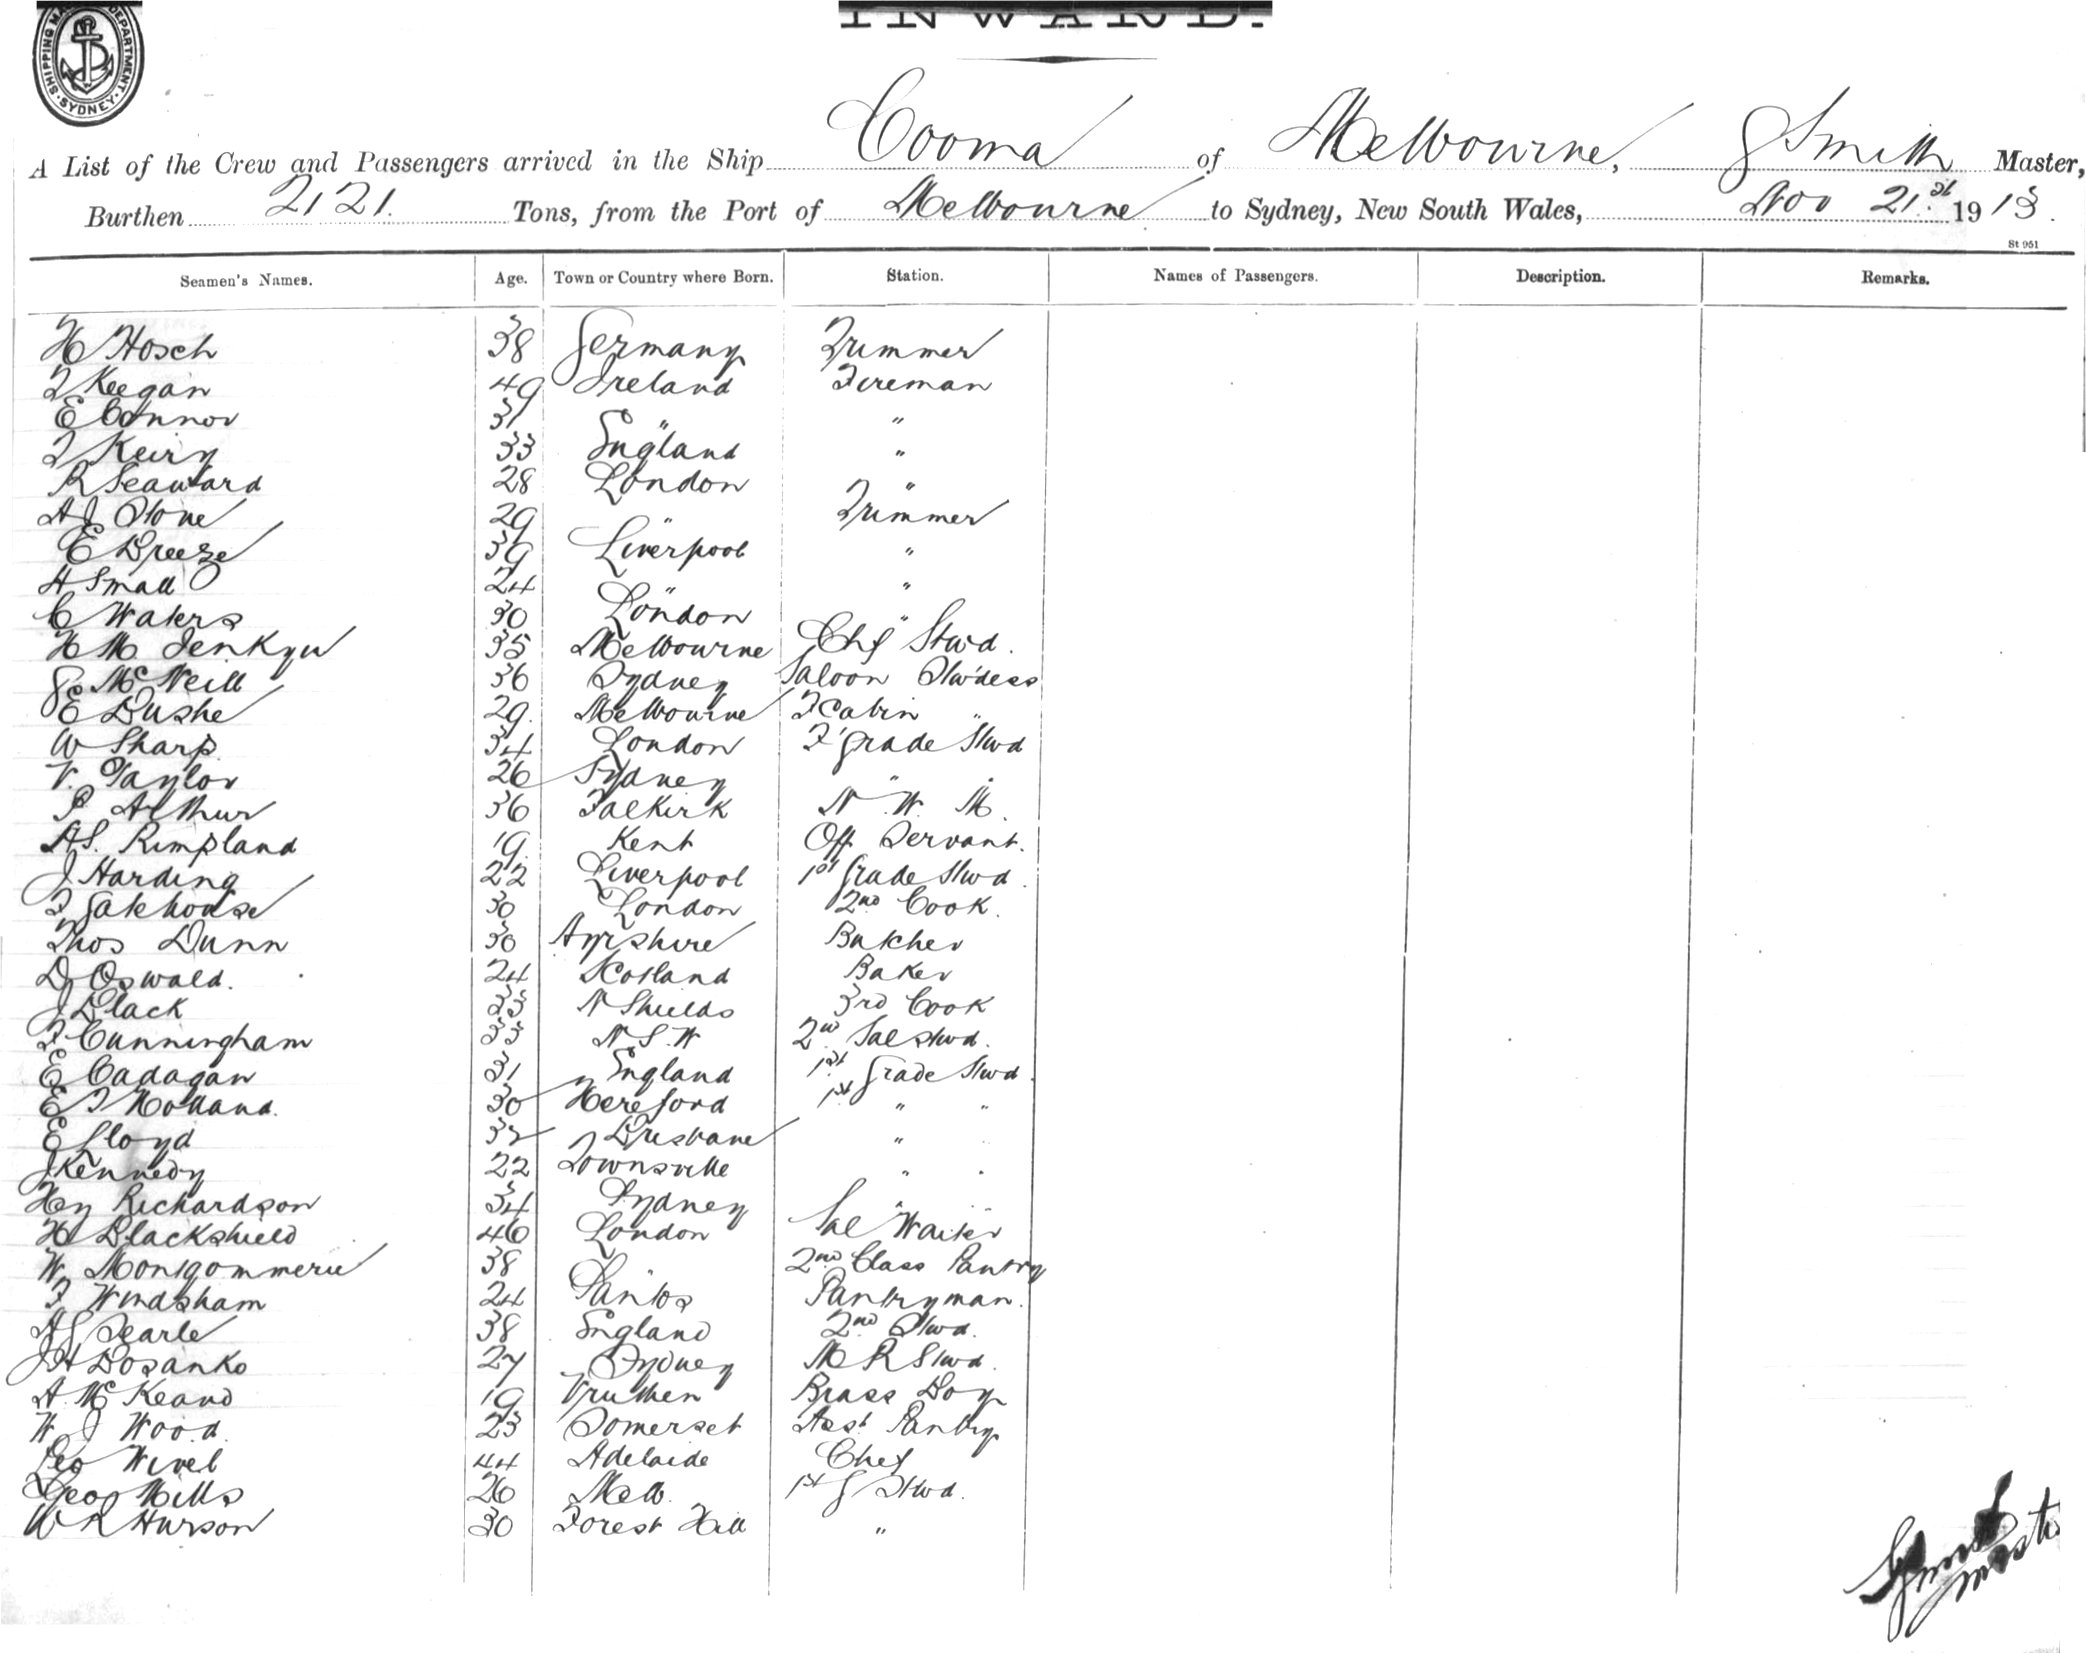 SHIPPING MA DEPARTMENT SYDNEY
INWARD.
A List of the Crew and Passengers arrived in the Ship Cooma of Melbourne, G Smith Master,
Burthen 2121. Tons, from the Port of Melbourne to Sydney, New South Wales, Nov 21.st 1913.
St 951
Seamen's Names. Age. Town or Country where Born. Station. Names of Passengers. Description. Remarks.
H Hosch 38 Germany Trimmer
T Keegan 49 Ireland Fireman
E Connor 31 " "
T Keiry 33 England "
R Seaward 28 London "
A J Stone 29 " Trimmer
E Breeze 39 Liverpool "
H Small 24 " "
C Waters 30 London "
H M Jenkyn 35 Melbourne Chf Stwd.
G McNeill 36 Sydney Saloon Stw'dess
E Bushe 29. Melbourne F Cabin "
W Sharp 34 London F' grade Stwd
V. Taylor 26 Sydney " "
P Arthur 36 Falkirk N. W. M.
A S. Rimpland 19 Kent Off Servant.
J Harding 22 Liverpool 1st Grade Stwd.
F Gatehouse 30 London 2nd Cook.
Thos Dunn 30 Ayrshire Butcher
D Oswald. 24 Scotland Baker
J Black 33 N Shields 3rd Cook
F Cunningham 33 N. S. W 2nd Sal Stwd.
E Cadagan 31 England 1st Grade Stwd.
E T Holland. 30 Hereford 1st " "
E Lloyd 32 Brisbane " "
J Kennedy 22 Townsville " "
Hy Richardson 34 Sydney " "
H Blackshield 46 London Sal Waiter
W. Montgommerie 38 " 2nd Class Pantry
F Windsham 24 Santos Pantryman.
A G Searle 38 England 2nd Stwd.
J H Bosanko 27 Sydney M R Stwd.
A. McKeand 19 Bruthen Brass Boy
W J Wood. 23 Somerset Asst Pantry
Leo Wivel 44 Adelaide Chef
Geo Mills 26 Melb. 1st G Stwd.
W R Hurson 30 Forest Hill "
G Smith
Master